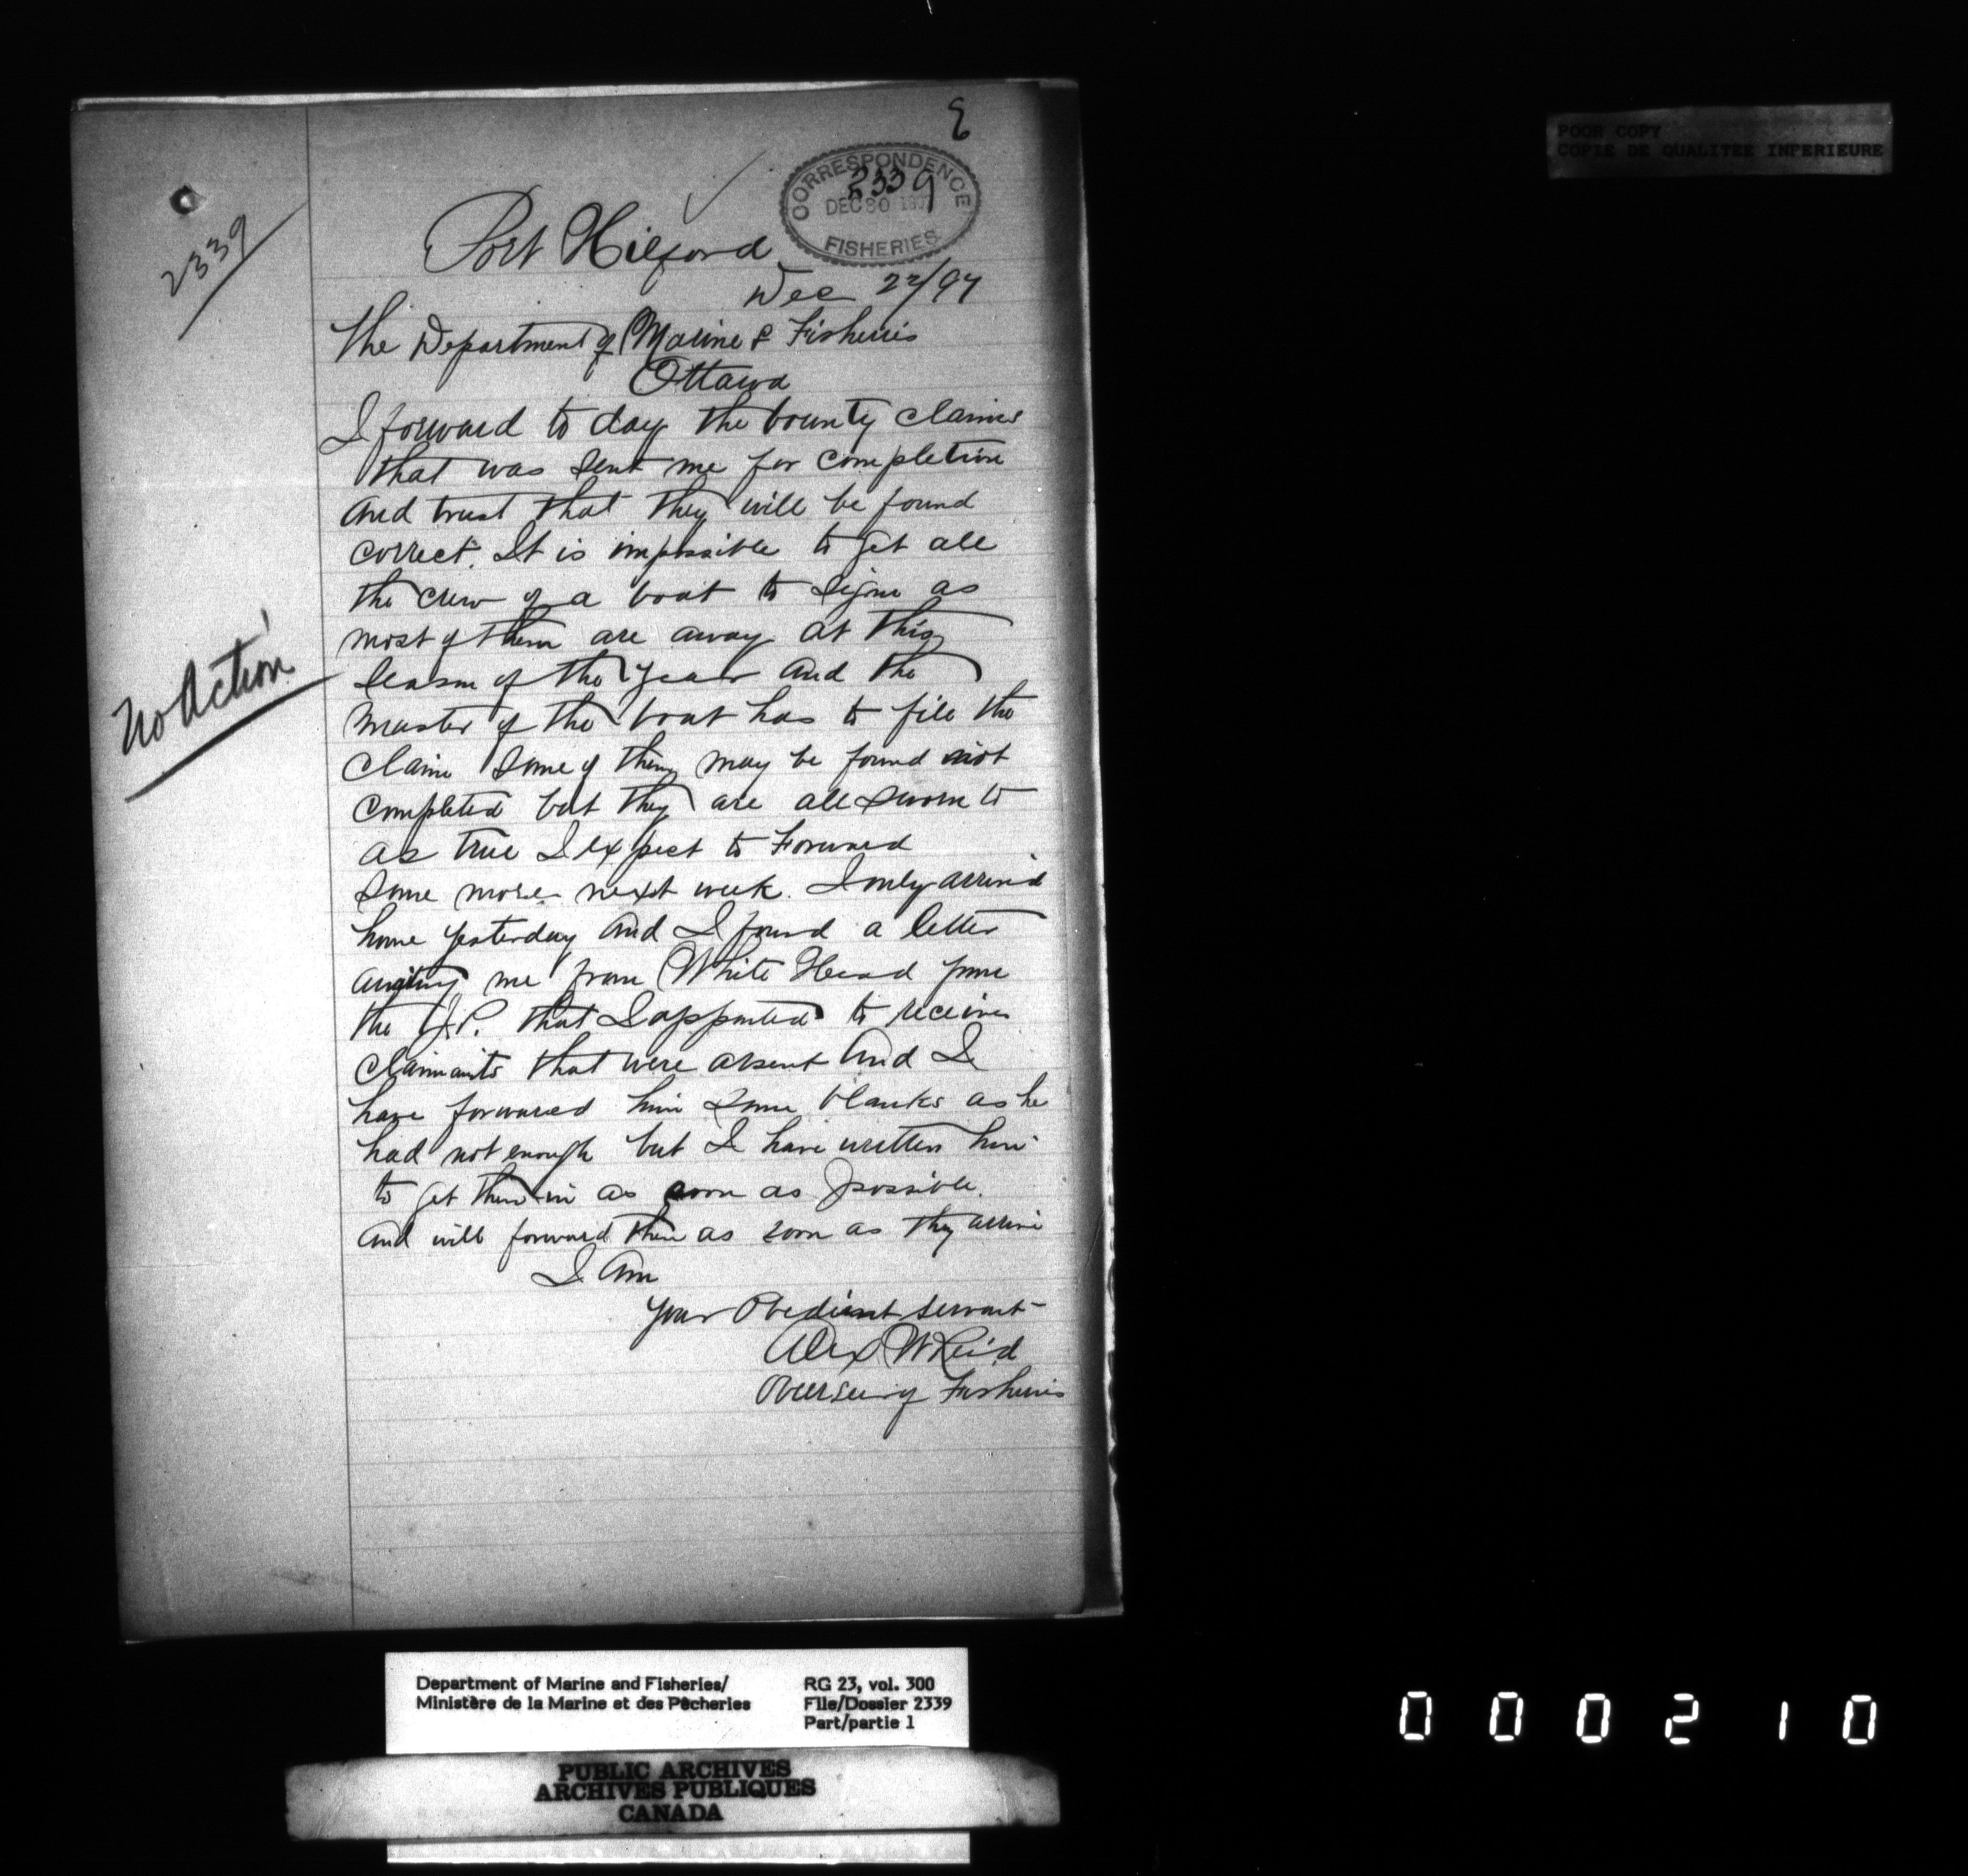 E
POOR COPY
COPIE DE QUALITEE INFERIEURE
CORRESPONDENCE
2339
DEC 30 1897
FISHERIES
2339
Port Hilford
Dec 22/97
The Department of Marine & Fisheries
Ottawa
I forward to day the bounty claims
that was sent me for completion
and trust that they will be found
correct. It is impossible to get all
the crew of a boat to signe as
most of them are away at this
season of the year and the
master of the boat has to file the
claim some of them may be found not
completed but they are all sworn to
as true I expect to Forward
some more next week. I only arrived
home yesterday and I found a letter
awaiting me from White Head from
the J.P. that I appointed to receive
claimants that were absent and I
have forwared him some blanks as he
had not enough but I have written him
to get them in as soon as possible.
and will forward them as soon as they arrive
I am
your Obedient servant
Alex W Reid
Overseer of Fisheries
No Action
Department of Marine and Fisheries/
Ministère de la Marine et des Pêcheries
RG 23, vol. 300
File/Dossier 2339
Part/partie 1
PUBLIC ARCHIVES
ARCHIVES PUBLIQUES
CANADA
000210